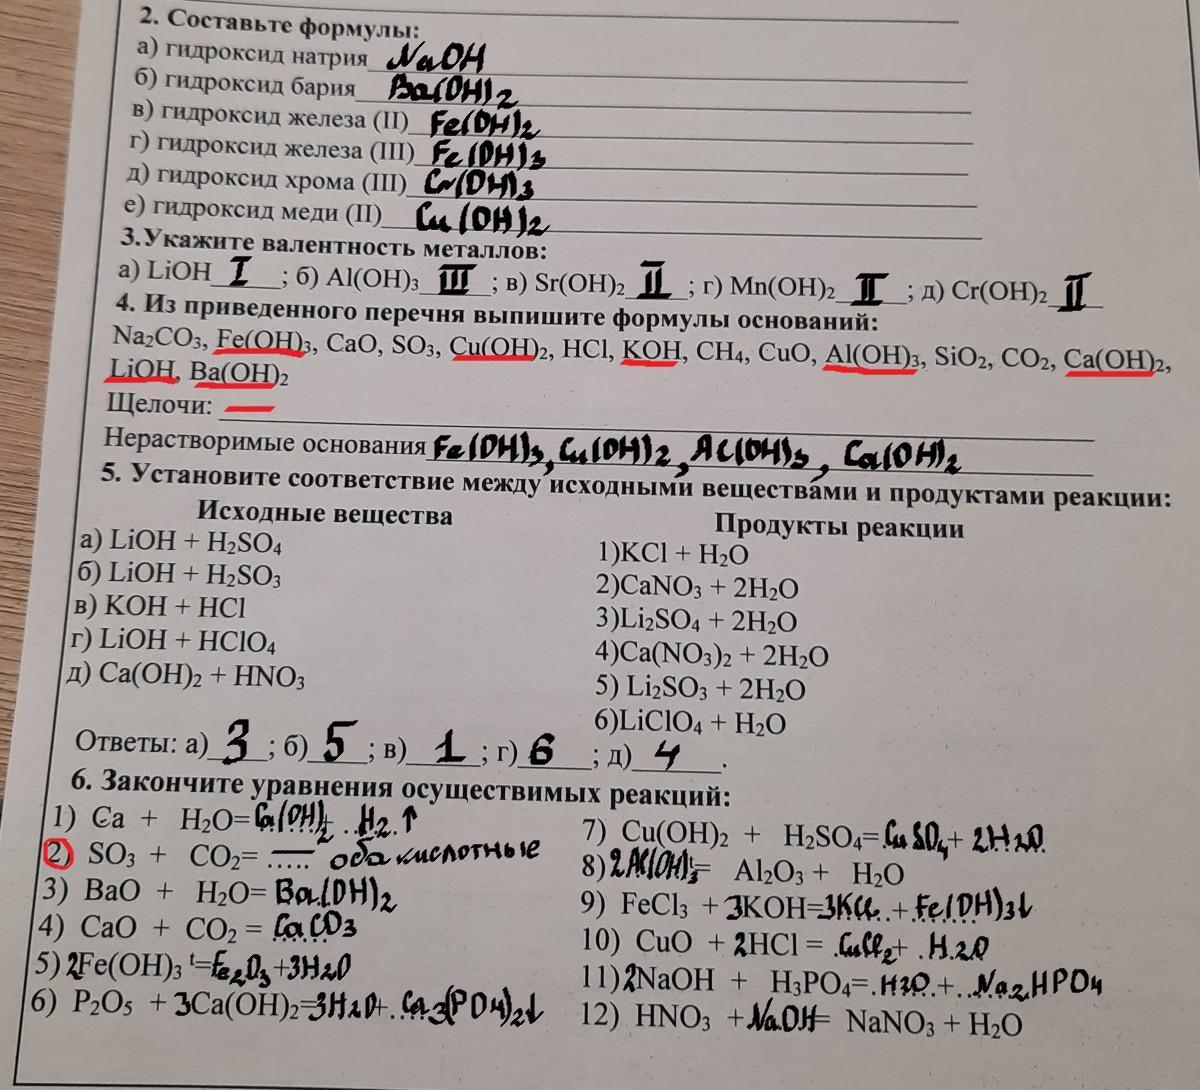 2. Составьте формулы:
а) гидроксид натрия NaOH
б) гидроксид бария Ba(OH)2
в) гидроксид железа (II) Fe(OH)2
г) гидроксид железа (III) Fe(OH)3
д) гидроксид хрома (III) Cr(OH)3
е) гидроксид меди (II) Cu(OH)2
3.Укажите валентность металлов:
а) LiOH I ; б) Al(OH)₃ III ; в) Sr(OH)₂ II ; г) Mn(OH)₂ II ; д) Cr(OH)₂ II
4. Из приведенного перечня выпишите формулы оснований:
Na₂CO₃, Fe(OH)₃, CaO, SO₃, Cu(OH)₂, HCl, KOH, CH₄, CuO, Al(OH)₃, SiO₂, CO₂, Ca(OH)₂,
LiOH, Ba(OH)₂
Щелочи: —
Нерастворимые основания Fe(OH)3, Cu(OH)2, Al(OH)3, Ca(OH)2
5. Установите соответствие между исходными веществами и продуктами реакции:
Исходные вещества
а) LiOH + H₂SO₄
б) LiOH + H₂SO₃
в) KOH + HCl
г) LiOH + HClO₄
д) Ca(OH)₂ + HNO₃
Продукты реакции
1)KCl + H₂O
2)CaNO₃ + 2H₂O
3)Li₂SO₄ + 2H₂O
4)Ca(NO₃)₂ + 2H₂O
5) Li₂SO₃ + 2H₂O
6)LiClO₄ + H₂O
Ответы: а) 3 ; б) 5 ; в) 1 ; г) 6 ; д) 4 .
6. Закончите уравнения осуществимых реакций:
1) Ca + H₂O= Ca(OH)2 + H2↑
2) SO₃ + CO₂= — оба кислотные
3) BaO + H₂O= Ba(OH)2
4) CaO + CO₂ = CaCO3
5) 2Fe(OH)₃ ᵗ= Fe2O3 +3H2O
6) P₂O₅ + 3Ca(OH)₂=3H2O+ Ca3(PO4)2↓
7) Cu(OH)₂ + H₂SO₄= CuSO4 + 2H2O
8) 2Al(OH)3 ᵗ= Al₂O₃ + H₂O
9) FeCl₃ + 3KOH=3KCl + Fe(OH)3↓
10) CuO + 2HCl = CuCl2 + H2O
11) 2NaOH + H₃PO₄= H2O + Na2HPO4
12) HNO₃ + NaOH = NaNO₃ + H₂O